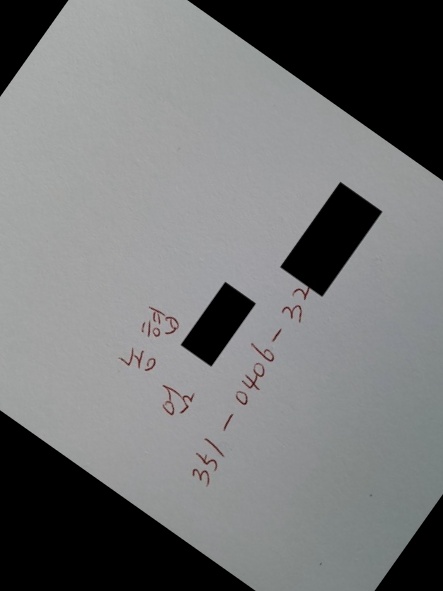 농협
351-0406-32